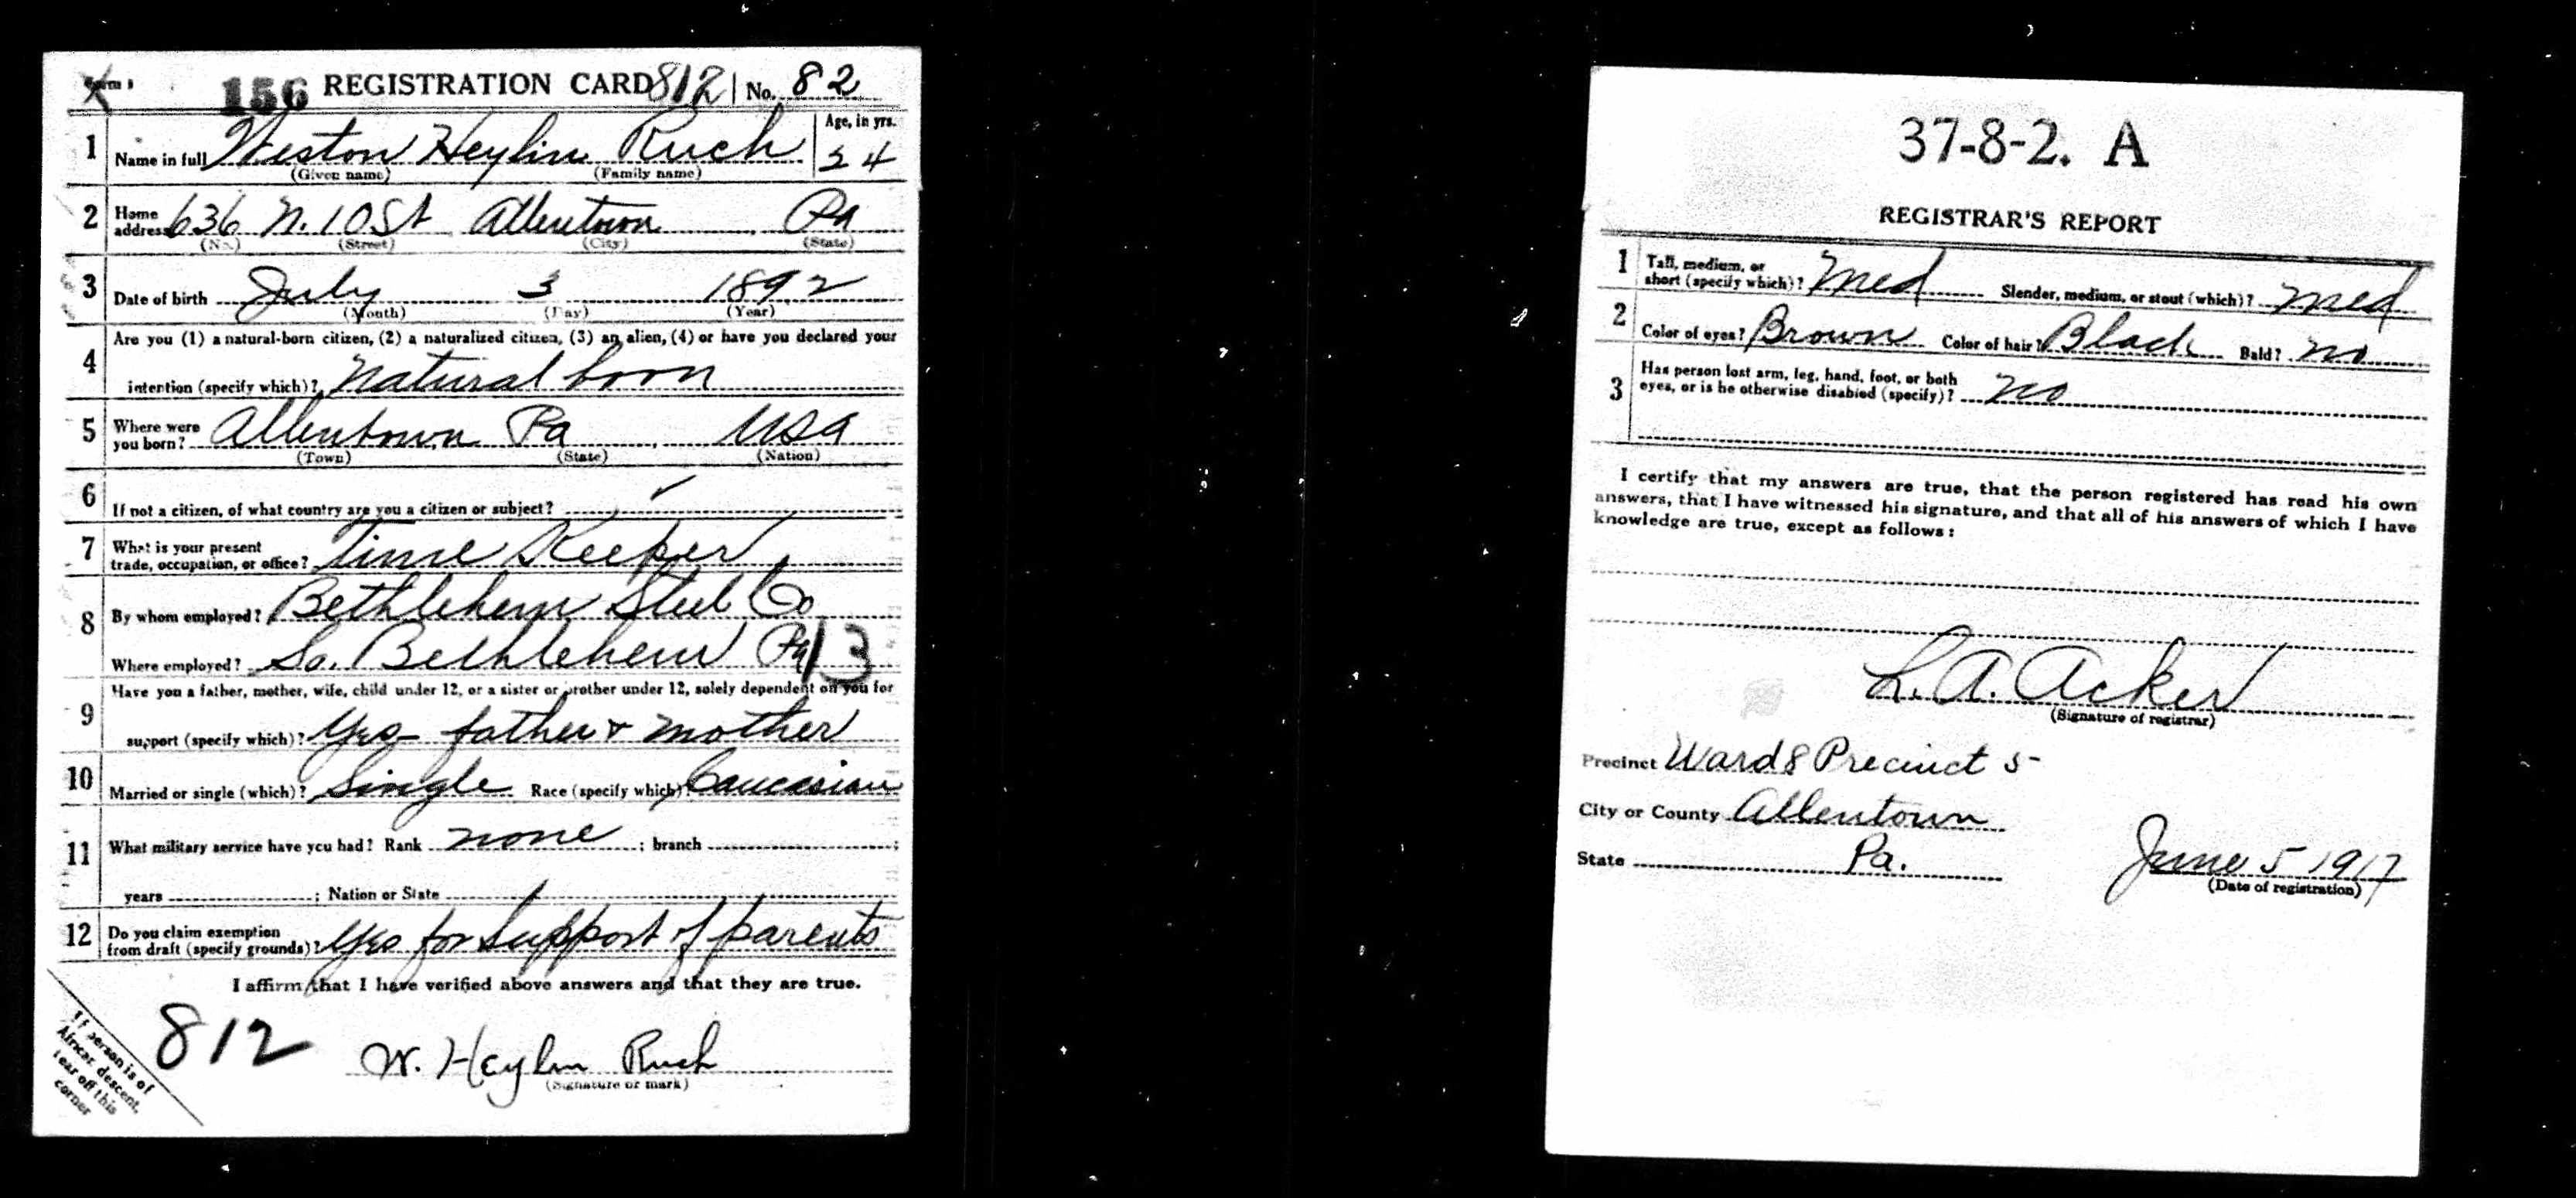 Form 1 156 REGISTRATION CARD 812 No. 82
1 Name in full Weston Heylin Ruch Age, in yrs. 24
(Given name) (Family name)
2 Home address 636 N. 10 St Allentown Pa
(No.) (Street) (City) (State)
3 Date of birth July 3 1892
(Month) (Day) (Year)
4 Are you (1) a natural-born citizen, (2) a naturalized citizen, (3) an alien, (4) or have you declared your
intention (specify which)? Natural born
5 Where were you born? Allentown Pa USA
(Town) (State) (Nation)
6 If not a citizen, of what country are you a citizen or subject?
7 What is your present trade, occupation, or office? Time Keeper
8 By whom employed? Bethlehem Steel Co
Where employed? So. Bethlehem Pa 13
9 Have you a father, mother, wife, child under 12, or a sister or brother under 12, solely dependent on you for
support (specify which)? Yes - father & mother
10 Married or single (which)? Single Race (specify which)? Caucasian
11 What military service have you had? Rank none ; branch ;
years ; Nation or State
12 Do you claim exemption from draft (specify grounds)? Yes for support of parents
I affirm that I have verified above answers and that they are true.
812
W. Heylin Ruch
(Signature or mark)
If person is of
African descent,
tear off this
corner
37-8-2. A
REGISTRAR'S REPORT
1 Tall, medium, or short (specify which)? Med Slender, medium, or stout (which)? Med
2 Color of eyes? Brown Color of hair? Black Bald? No
3 Has person lost arm, leg, hand, foot, or both eyes, or is he otherwise disabled (specify)? No
I certify that my answers are true, that the person registered has read his own
answers, that I have witnessed his signature, and that all of his answers of which I have
knowledge are true, except as follows:
L. A. Acker
(Signature of registrar)
Precinct Ward 8 Precinct 5
City or County Allentown
State Pa. June 5 1917
(Date of registration)